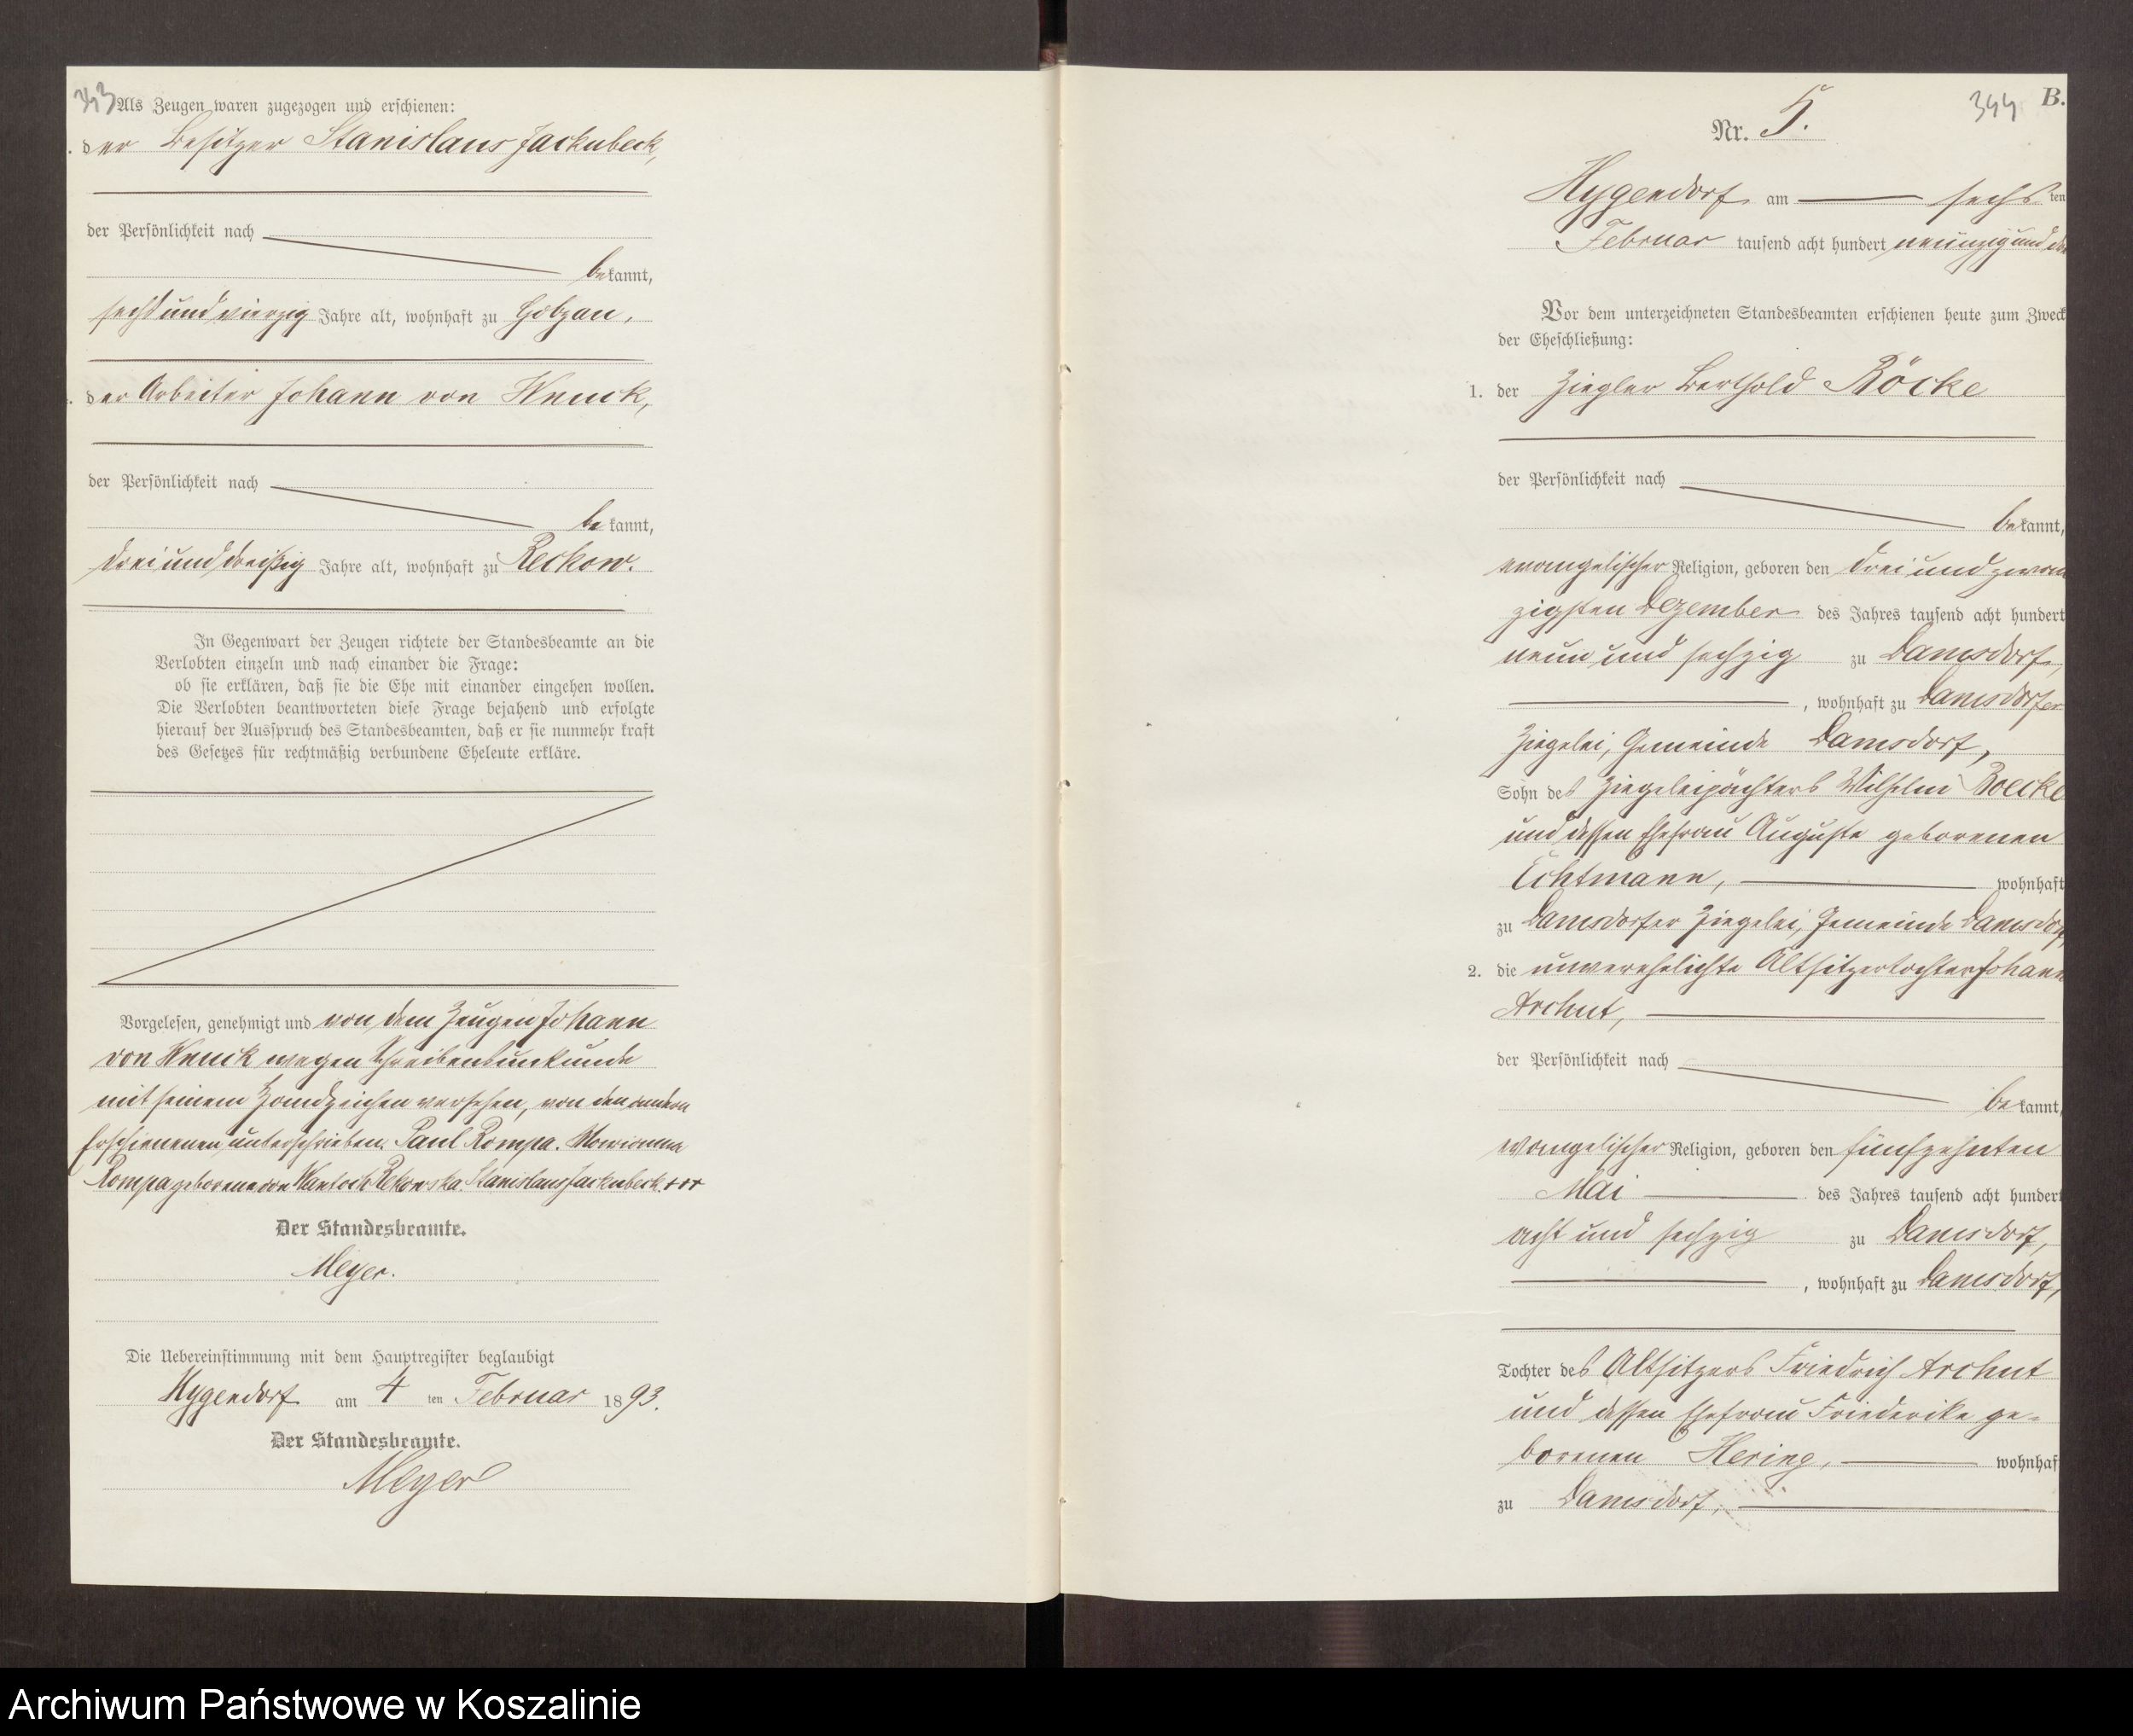 343
Als Zeugen waren zugezogen und erschienen:
der Besitzer Stanislaus Jackubeck,
der Persönlichkeit nach
bekannt,
sechsundvierzig Jahre alt, wohnhaft zu Golzau,
der Arbeiter Johann von Wnuck,
der Persönlichkeit nach
bekannt,
dreiunddreißig Jahre alt, wohnhaft zu Reckow.
In Gegenwart der Zeugen richtete der Standesbeamte an die
Verlobten einzeln und nach einander die Frage:
ob sie erklären, daß sie die Ehe mit einander eingehen wollen.
Die Verlobten beantworteten diese Frage bejahend und erfolgte
hierauf der Ausspruch des Standesbeamten, daß er sie nunmehr kraft
des Gesetzes für rechtmäßig verbundene Eheleute erkläre.
Vorgelesen, genehmigt und von dem Zeugen Johann
von Wnuck wegen Schreibensunkunde
mit seinem Handzeichen versehen, von den andern
Erschienenen unterschrieben. Paul Rompa. Marianna
Rompa geborene von Wantoch Rekowska. Stanislaus Jackubeck. +++
Der Standesbeamte.
Meyer.
Die Uebereinstimmung mit dem Hauptregister beglaubigt
Hygendorf am 4 ten Februar 1893.
Der Standesbeamte.
Meyer
344 B.
Nr. 5.
Hygendorf am sechsten
Februar tausend acht hundert neunzig und
Vor dem unterzeichneten Standesbeamten erschienen heute zum Zweck
der Eheschließung:
1. der Ziegler Berthold Röcke
der Persönlichkeit nach
bekannt,
evangelischer Religion, geboren den dreiundzwan
zigsten Dezember des Jahres tausend acht hundert
neun und sechzig zu Damsdorf,
, wohnhaft zu Damsdorfer
Ziegelei, Gemeinde Damsdorf,
Sohn des Ziegeleipächters Wilhelm Roecke
und dessen Ehefrau Auguste geborenen
Echtmann, wohnhaft
zu Damsdorfer Ziegelei, Gemeinde Damsdorf
2. die unverehelichte Altsitzertochter Johann
Archut,
der Persönlichkeit nach
bekannt,
evangelischer Religion, geboren den fünfzehnten
Mai des Jahres tausend acht hundert
acht und sechzig zu Damsdorf,
, wohnhaft zu Damsdorf,
Tochter des Altsitzers Friedrich Archut
und dessen Ehefrau Friederike ge-
borenen Hering, wohnhaf
zu Damsdorf,
Archiwum Państwowe w Koszalinie